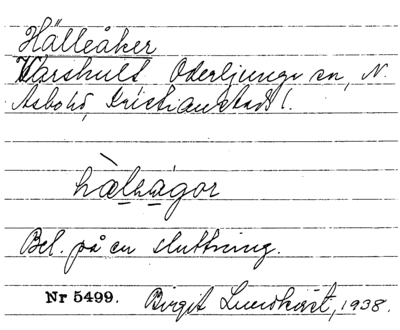 Hälleåker
Varshult Oderljunga sn, N.
Åsbo hd, Kristianstads l.
hàlɩ̨ågor
Bel. på en sluttning.
Nr 5499. Birgit Lundkvist, 1938.